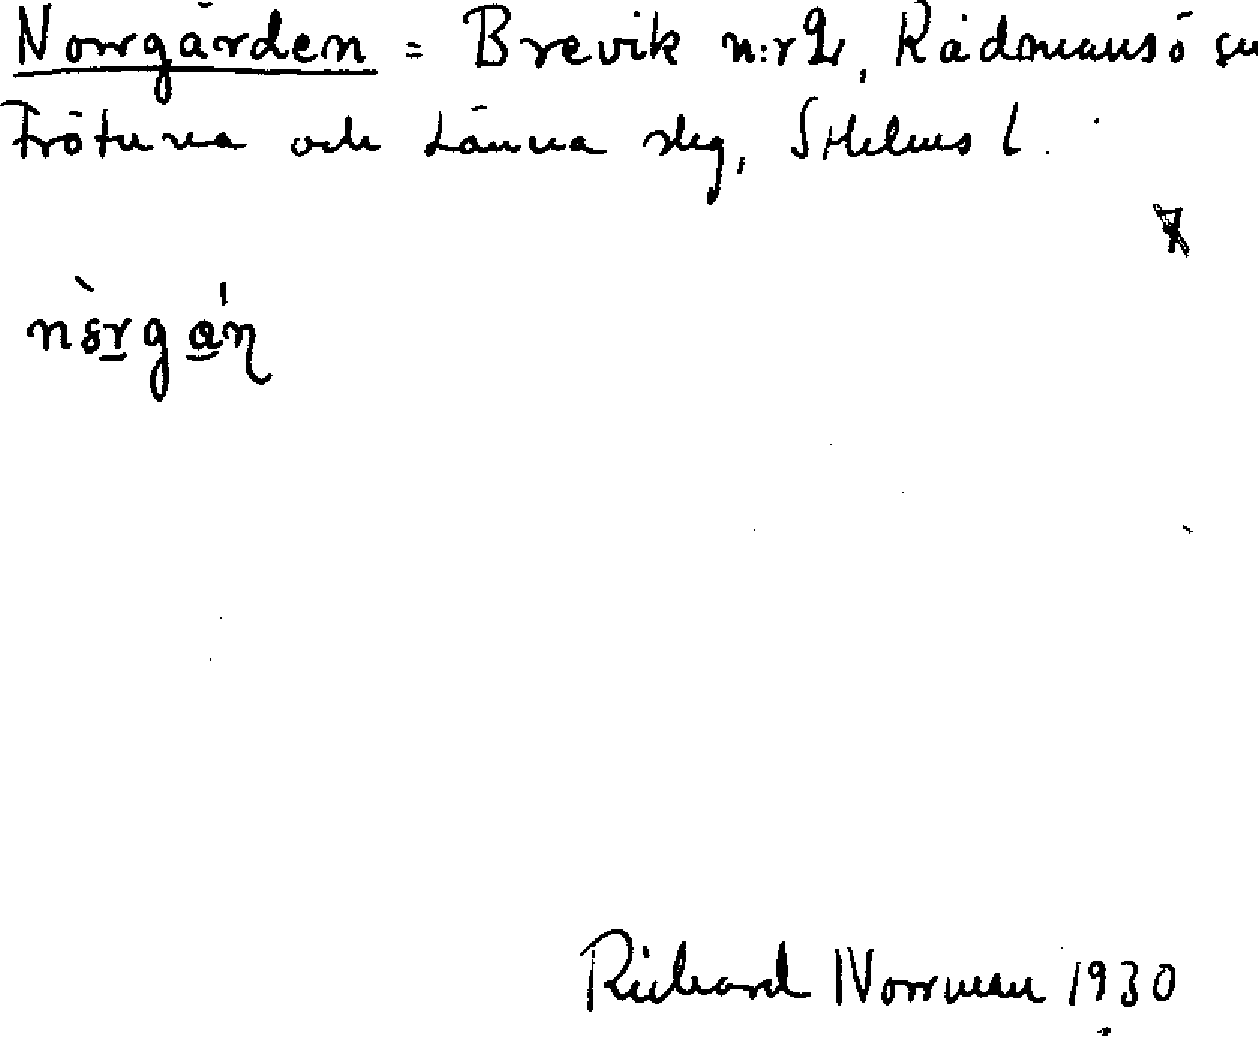 Norrgården = Brevik n:r 2, Rådmansö sn
Frötuna och Länna slg, Sthlms l.
Richard Norrman 1930